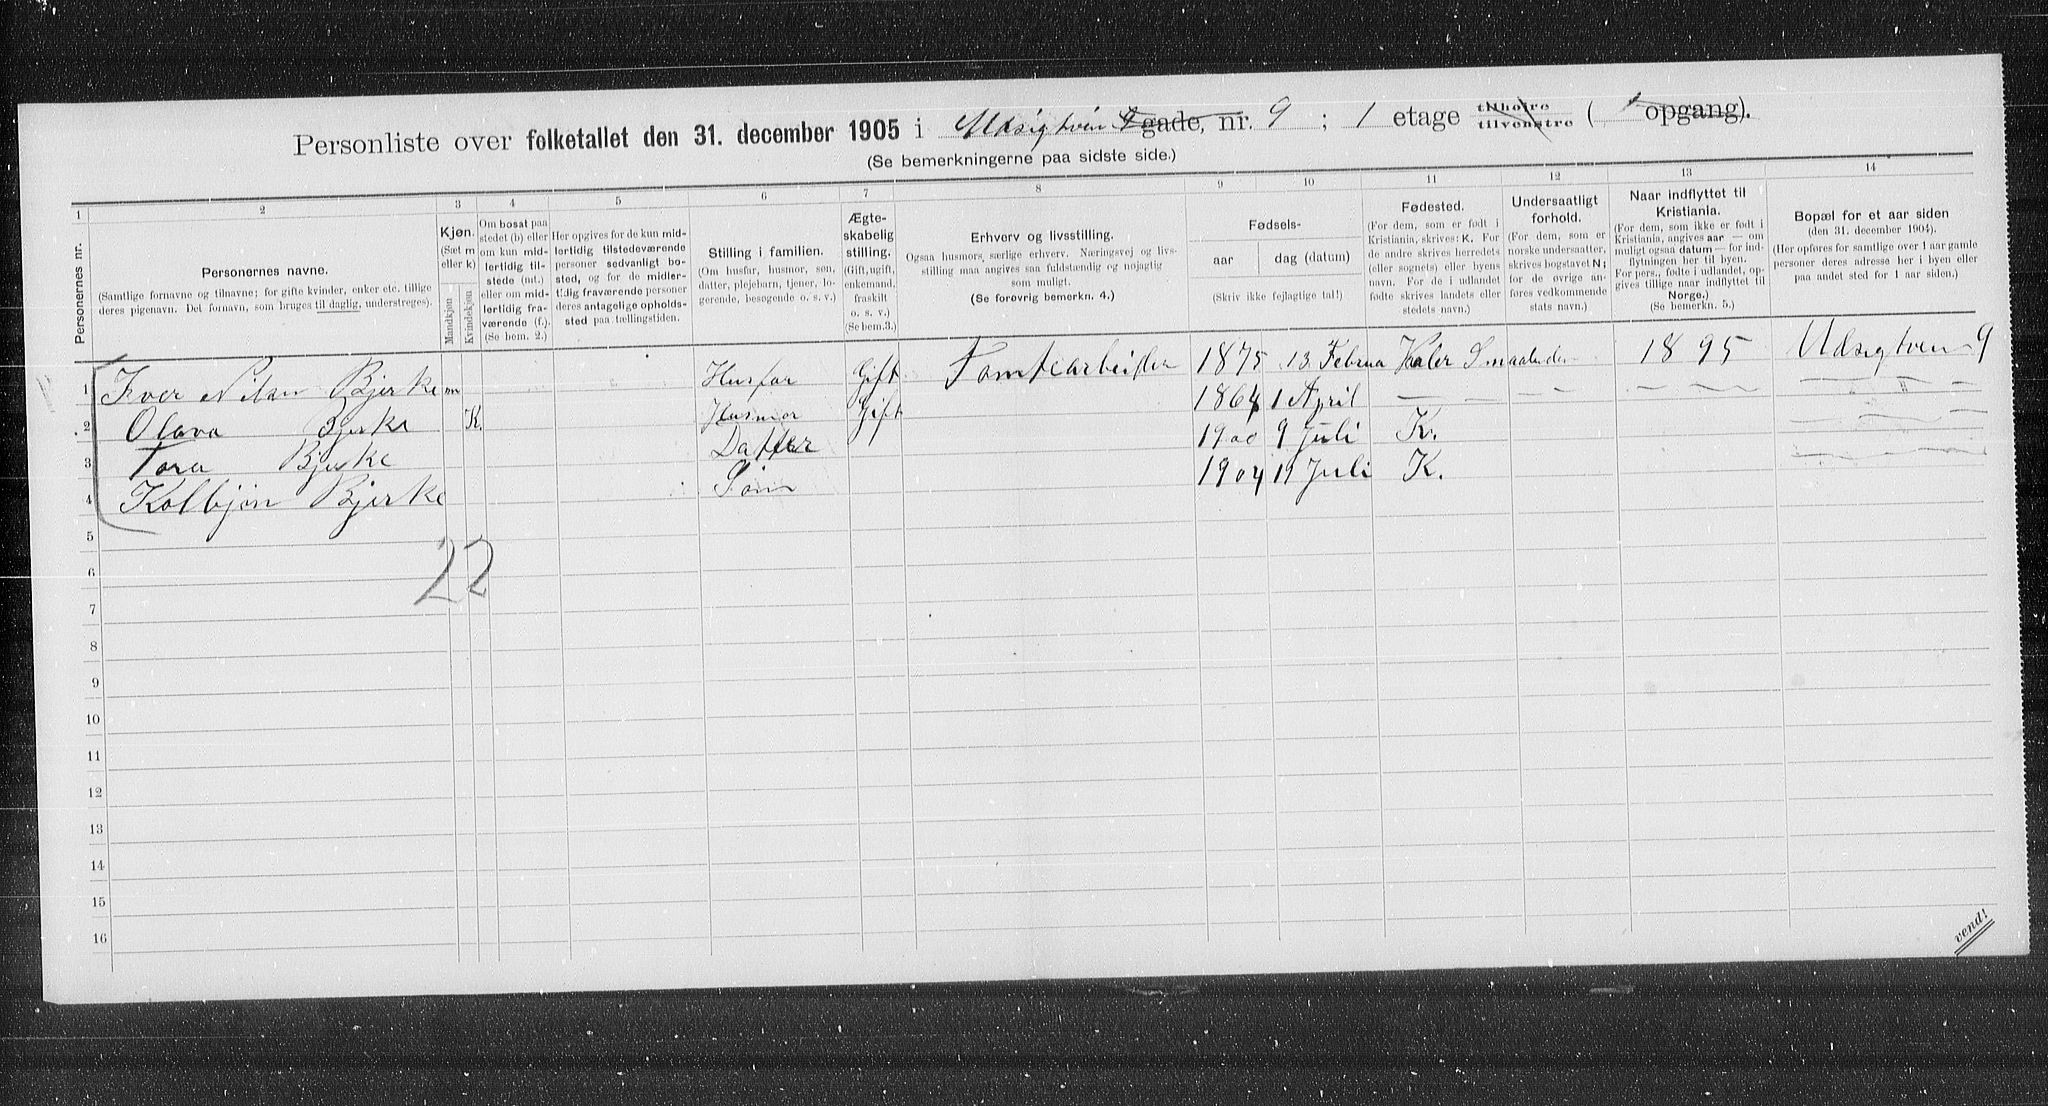 Personliste over folketallet den 31. december 1905 i Udsigtvein gade, nr. 9 ; 1 etage tilhøire tilvenstre ( 1 opgang).
(Se bemerkningerne paa sidste side.)
1 2 3 4 5 6 7 8 9 10 11 12 13 14
Personernes nr.
Personernes navne.
(Samtlige fornavne og tilnavne; for gifte kvinder, enker etc. tillige
deres pigenavn. Det fornavn, som bruges til daglig, understreges).
Kjøn.
(Sæt m
eller k)
Mandkjøn
Kvindekjøn
Om bosat paa
stedet (b) eller
om kun mid-
lertidig til-
stede (mt.)
eller om mid-
lertidig fra-
værende (f.).
(Se bem. 2.)
Her opgives for de kun mid-
lertidig tilstedeværende
personer sedvanligt bo-
sted, og for de midler-
tidig fraværende personer
deres antagelige opholds-
sted paa tællingstiden.
Stilling i familien.
(Om husfar, husmor, søn,
datter, plejebarn, tjener, lo-
gerende, besøgende o. s. v.)
Ægte-
skabelig
stilling.
(Gift, ugift,
enkemand,
fraskilt
o. s. v.)
(Se bem. 3.)
Erhverv og livsstilling.
Ogsaa husmors, særlige erhverv. Næringsvej og livs-
stilling maa angives saa fuldstændig og nøjagtig
som muligt.
(Se forøvrig bemerkn. 4.)
Fødsels-
aar
dag (datum)
(Skriv ikke fejlagtige tal!)
Fødested.
(For dem, som er født i
Kristiania, skrives: K. For
de andre skrives herredets
(eller sognets) eller byens
navn. For de i udlandet
fødte skrives landets eller
stedets navn.)
Undersaatligt
forhold.
(For dem, som er
norske undersaatter,
skrives bogstavet N;
for de øvrige an-
føres vedkommende
stats navn.)
Naar indflyttet til
Kristiania.
(For dem, som ikke er født i
Kristiania, angives aar — om
muligt ogsaa datum — for ind-
flytningen her til byen.
For pers., fødte i udlandet, op-
gives tillige naar indflyttet til
Norge.)
(Se bemerkn. 5.)
Bopæl for et aar siden
(den 31. december 1904).
(Her opføres for samtlige over 1 aar gamle
personer deres adresse her i byen eller
paa andet sted for 1 aar siden.)
1 Iver Bjerke m Husfar Gift Tomtearbeider 1875 13 Februa Vaaler Smaalnde 1895 Udsigtven 9
2 Olava Bjerke K. Husmor Gift 1864 1 April — — — — — — — — — " —
3 Tora Bjerke Datter 1900 9 Juli K. — — —
4 Kolbjøn Bjerke Søn 1904 19 Juli K. — — —
5
22
6
7
8
9
10
11
12
13
14
15
16
vend!